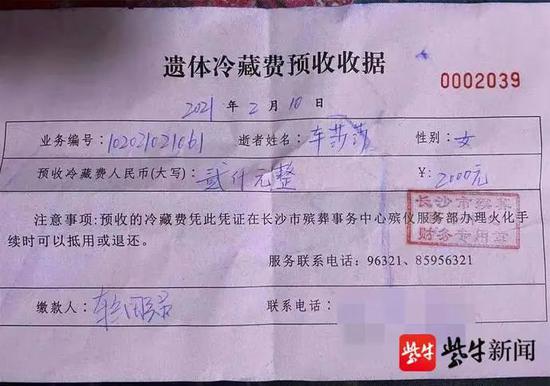 遗体冷藏费预收收据
0002039
2021 年 2 月 10 日
业务编号: 102021021061 逝者姓名: 车莎莎 性别: 女
预收冷藏费人民币(大写): 贰仟元整 ¥: 2000元
注意事项:预收的冷藏费凭此凭证在长沙市殡葬事务中心殡仪服务部办理火化手
续时可以抵用或退还。
长沙市殡葬
财务专用章
服务联系电话: 96321、85956321
缴款人: 车
联系电话:
紫牛 紫牛新闻